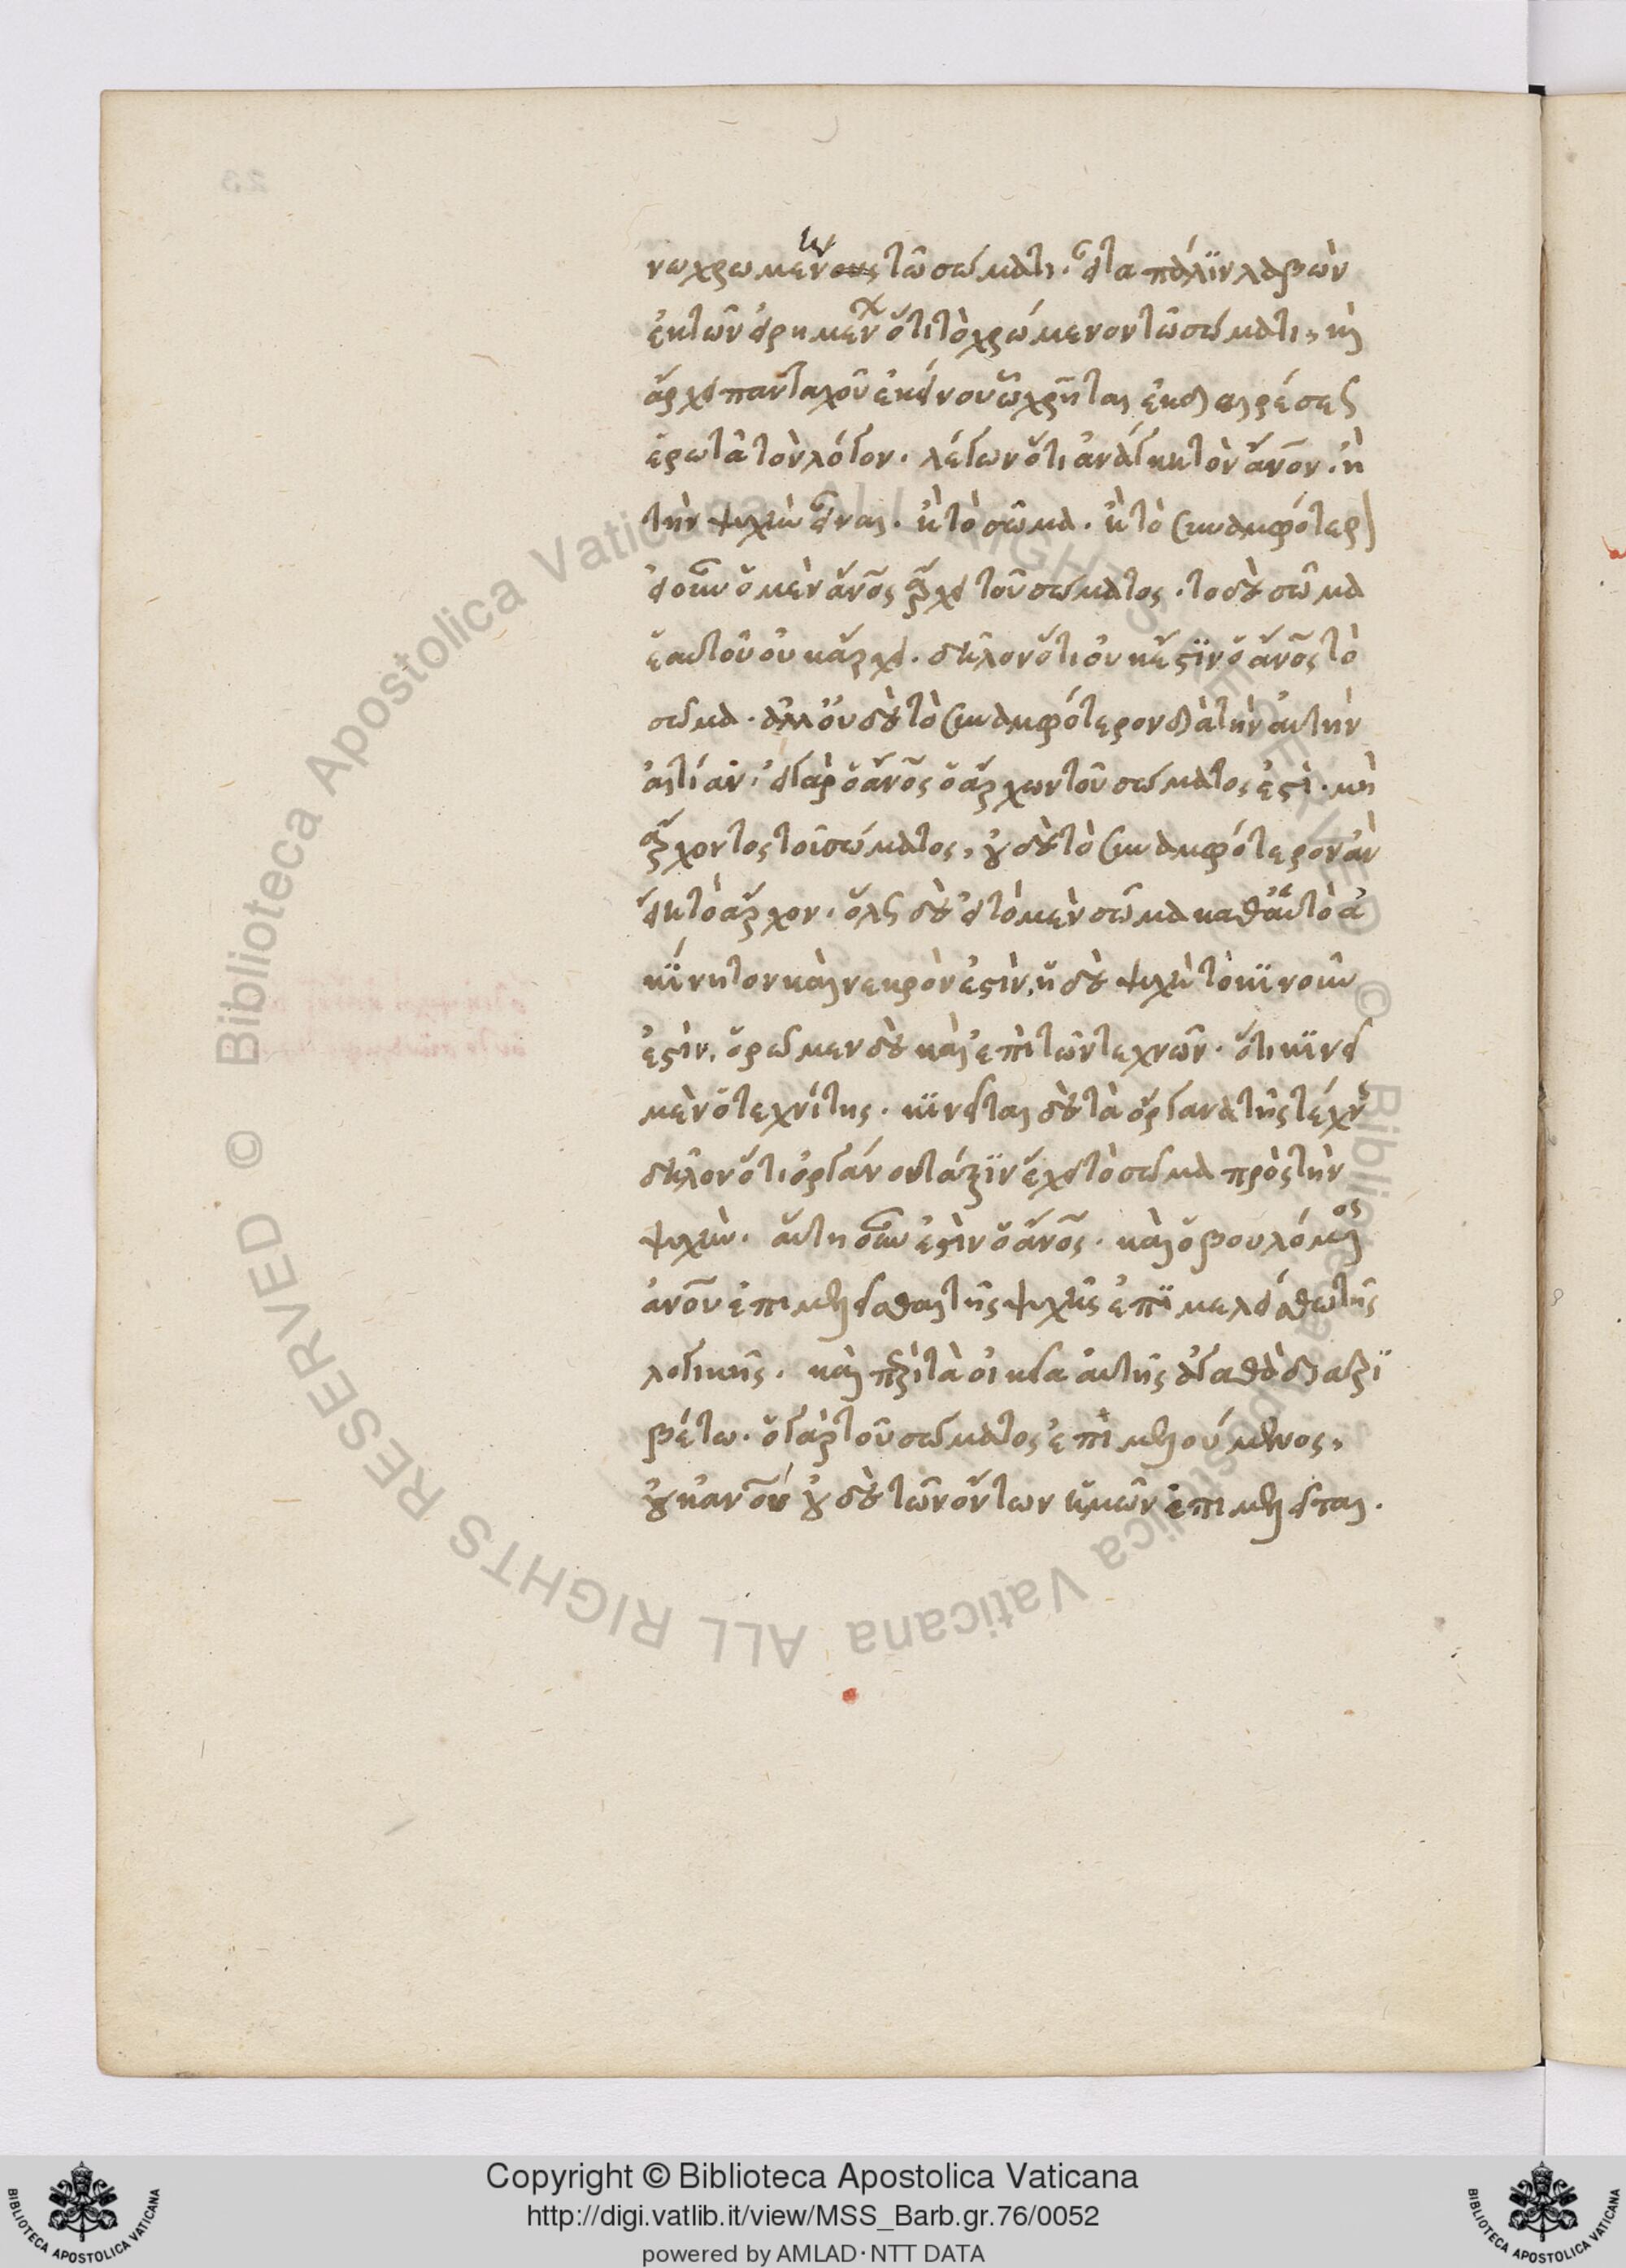 νω χρωμένους τῶ σώματι. εἶτα πάλϊν λαβὼν
ἐκ τῶν εἰρημέν ὅτι τὸ χρώμενον τῶ σώματι, καὶ
ἄρχει πανταχοῦ ἐκείνου ὧ χρῆται ἐκ διαιρέσεως
ἐρωτᾶ τὸν λόγον. λέγων ὅτι ἀνάγκη τὸν ἄνον. ἢ
τὴν ψυχὴν εἶναι. ἢ τὸ σῶμα. ἢ τὸ συναμφότερον
εἰ οὖν ὁ μὲν ἄνος ἄρχει τοῦ σώματος. τὸ δὲ σῶμα
ἑαυτοῦ οὐκ ἄρχει. δῆλον ὅτι οὐκ ἔστϊν ὁ ἄνος τὸ
σῶμα. ἀλλ' οὐδὲ τὸ συναμφότερον διὰ τὴν αὐτὴν
αἰτίαν. εἰ γὰρ ὁ ἄνος ὁ ἄρχων τοῦ σώματος ἐστὶ. μὴ
ἄρχοντος τοῦ σώματος, οὐδὲ τὸ συναμφότερον ἂν
εἴη τὸ ἄρχον. ὅλως δὲ εἰ τὸ μὲν σῶμα καθ' αὑτὸ ἀ
κίνητον καὶ νεκρόν ἐστὶν, ἡ δὲ ψυχὴ τὸ κϊνοῦν
ἐστὶν, ὁρῶμεν δὲ καὶ ἐπὶ τῶν τεχνῶν. ὅτι κϊνεῖ
μὲν ὁ τεχνίτης. κϊνεῖται δὲ τὰ ὄργανα τῆς τέχνης
δῆλον ὅτι ὀργάνου τάξϊν ἔχει τὸ σῶμα πρὸς τὴν
ψυχὴν. αὕτη οὖν ἐστὶν ὁ ἄνος. καὶ ὁ βουλόμενος
ἀνου ἐπιμελεῖσθαι τῆς ψυχῆς ἐπϊμελείσθω τῆς
λογικῆς. καὶ περὶ τὰ οἰκεῖα αὐτῆς ἀγαθὰ διατρϊ
βέτω. ὁ γὰρ τοῦ σώματος ἐπιμελούμενος,
οὐκ ἀνου οὐδὲ τῶν ὄντων ἡμῶν ἐπιμελεῖται.
Copyright © Biblioteca Apostolica Vaticana
http://digi.vatlib.it/view/MSS_Barb.gr.76/0052
powered by AMLAD·NTT DATA